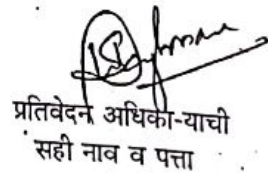 प्रतिवेदन अधिका-याची
सही नाव व पत्ता